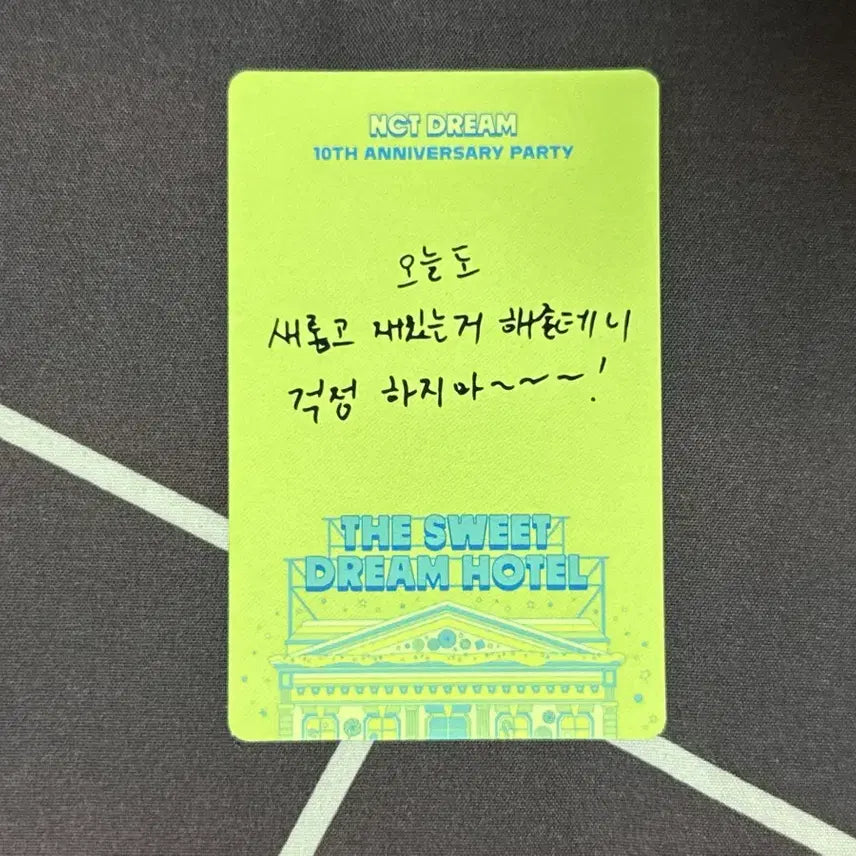 NCT DREAM
10TH ANNIVERSARY PARTY
오늘도
새롭고 재밌는거 해줄테니
걱정 하지마~~~!
THE SWEET
DREAM HOTEL